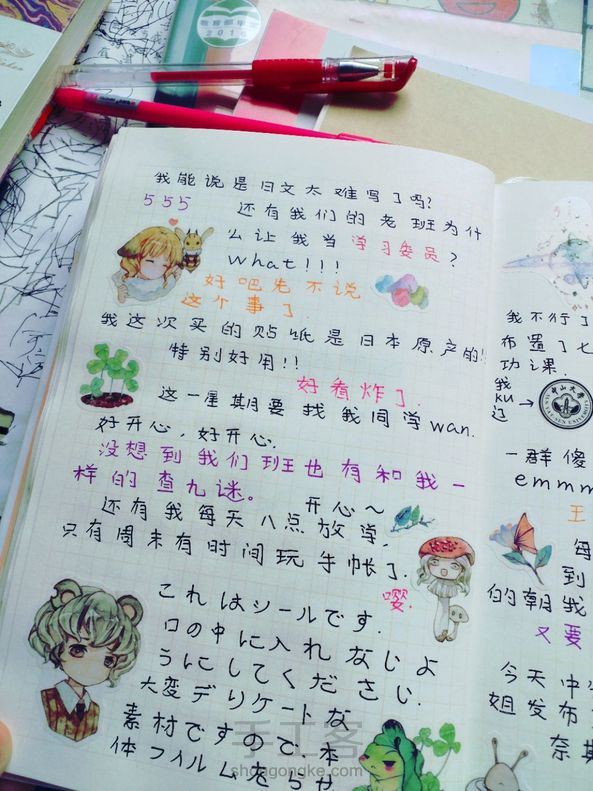 我能说是日文太难写了吗?
555 还有我们的老班为什
么让我当学习委员?
what!!!
好吧先不说
这个事了
我这次买的贴纸是日本原产的!
特别好用!!
好看炸了.
这一星期要找我同学wan.
好开心,好开心.
没想到我们班也有和我一
样的查九谜。
开心~
还有我每天八点放学,
只有周末有时间玩手帐了.
嘤.
これはシールです.
口の中に入れなじよ
うにしてください.
大変デリケートな
素材ですので、本
体フイルムを
我不行了
布置了七
功课.
我
ku
过
中山大学
一群傻
emmm
王
每
到
的朝我
又要
今天中
姐发布
奈斯
手工客
shougongke.com
2016